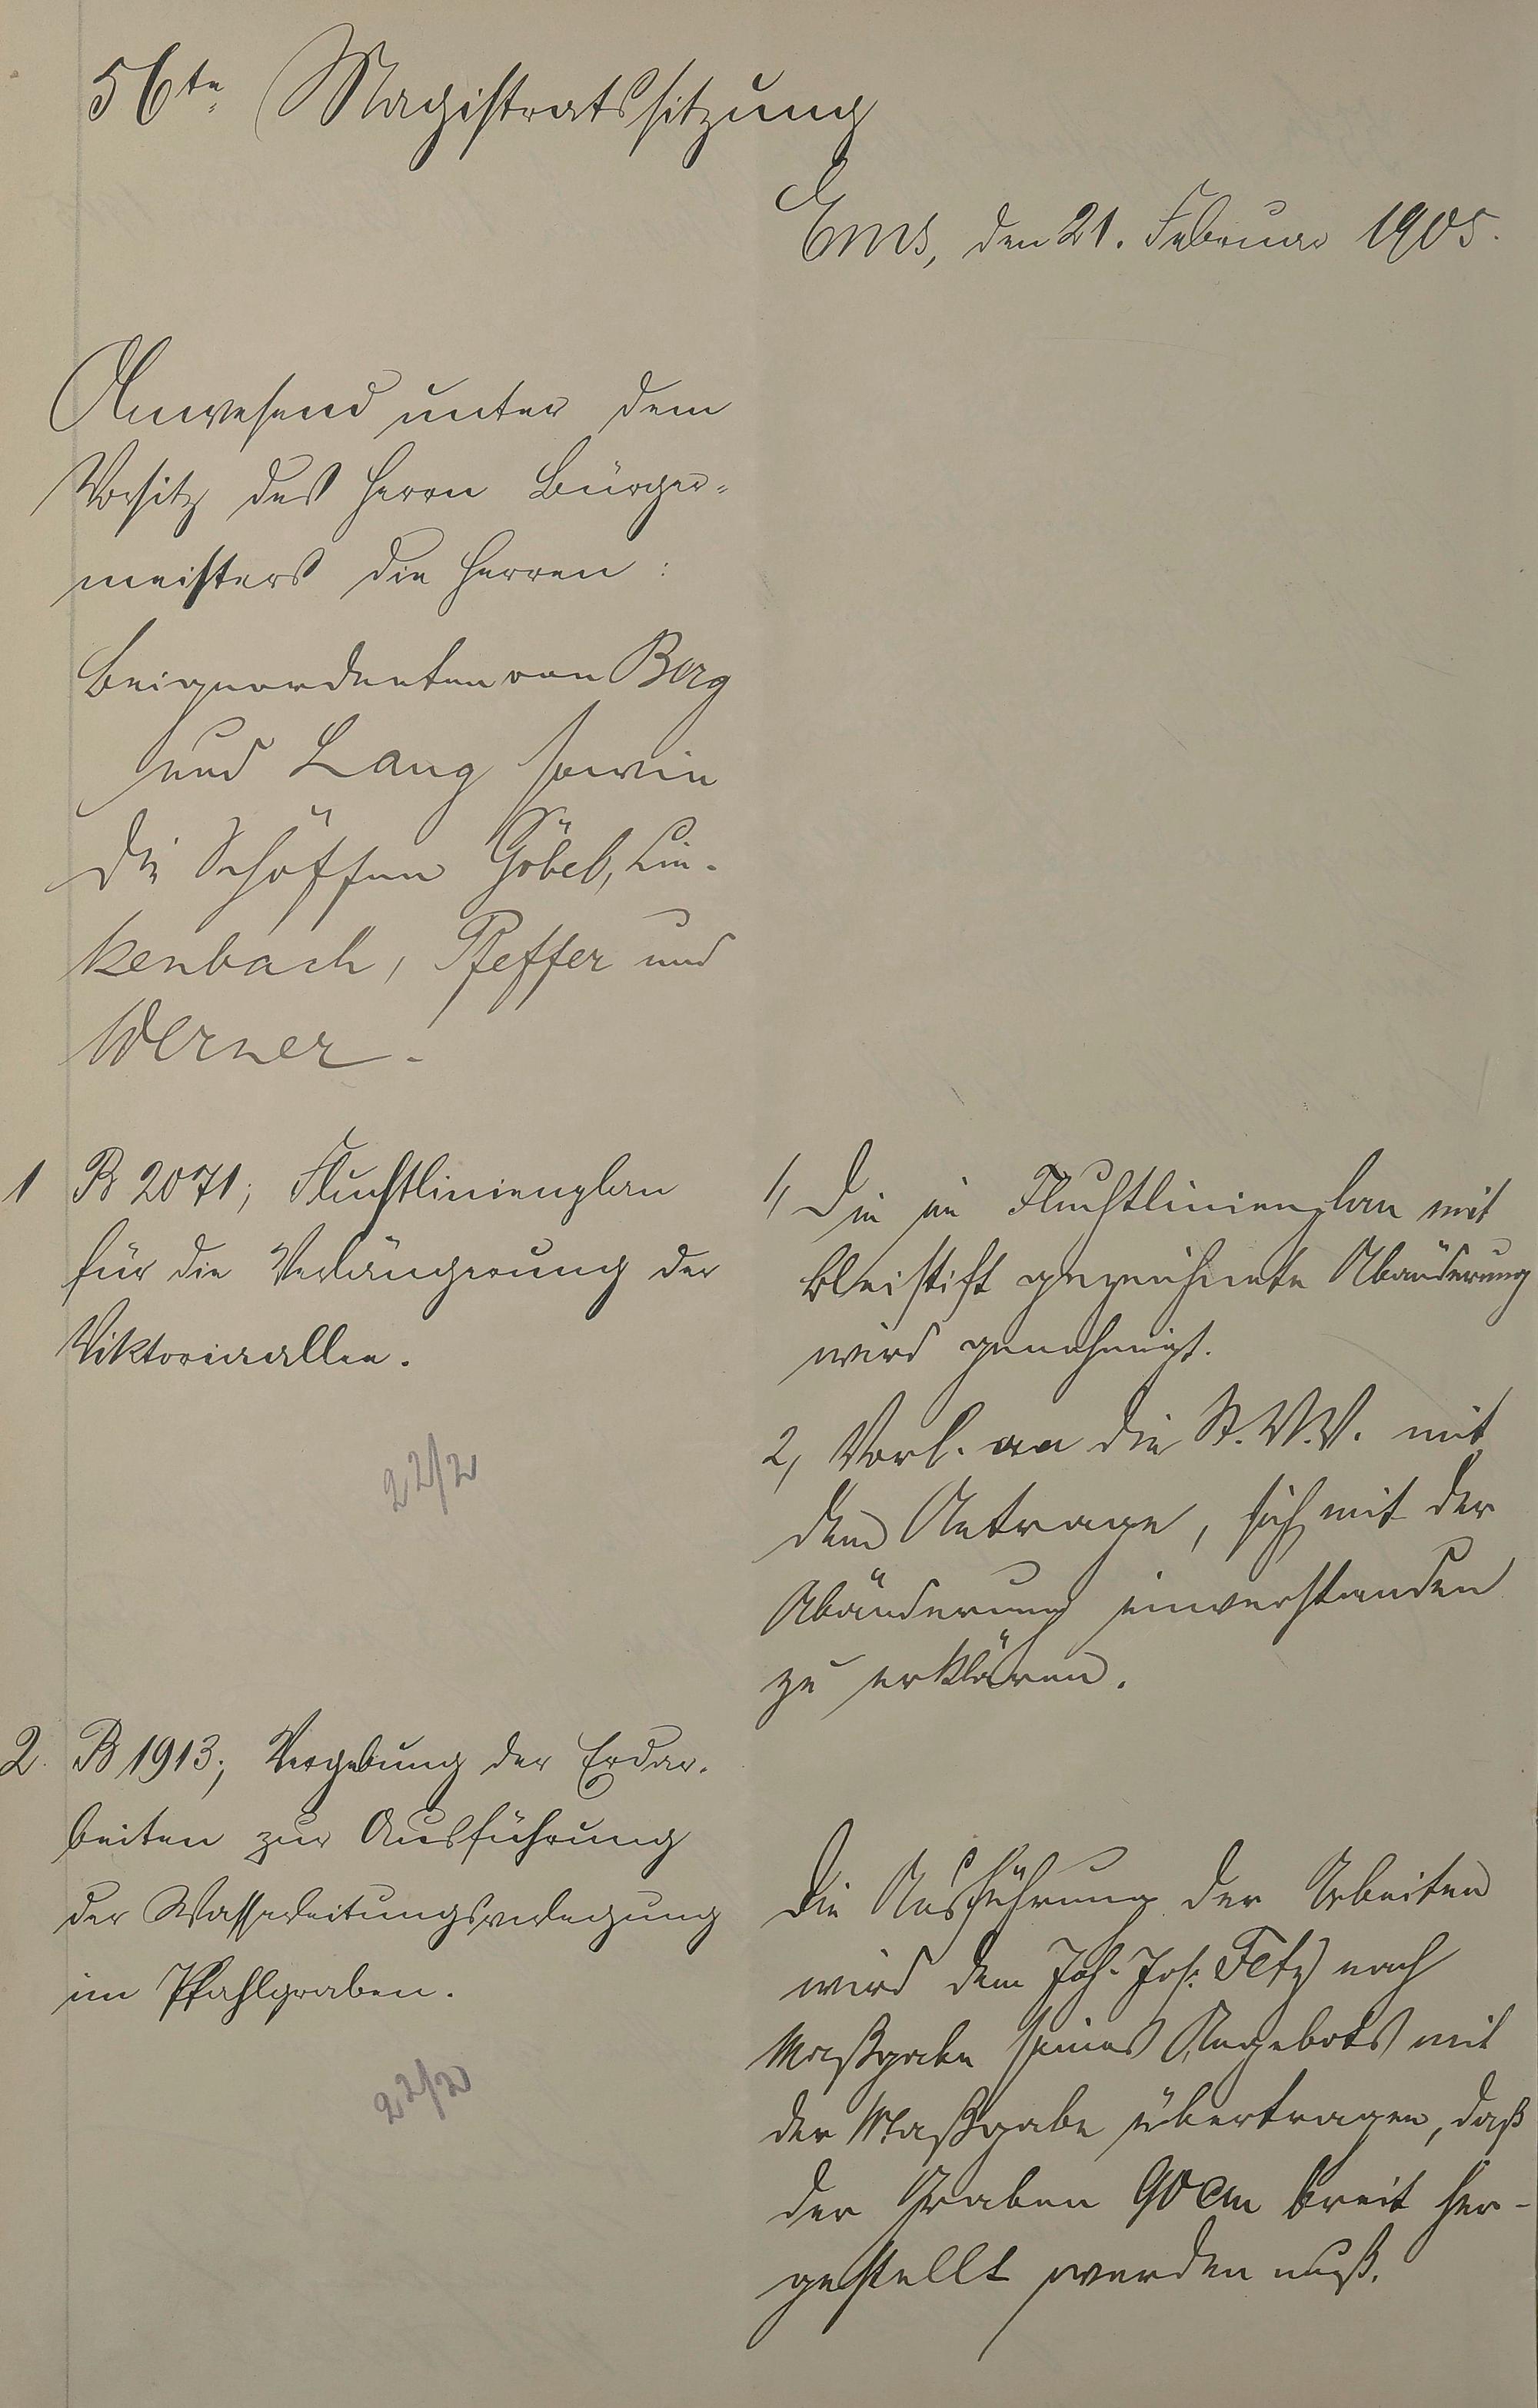 56te Magistratssitzung
Ems, den 21. Februar 1905.
Anwesend unter dem
Vorsitz des Herrn Bürger-
meisters die Herren:
Beigeordneten von Berg
und Lang sowie
die Schöffen Göbel, Lin-
kenbach, Pfeffer und
Werner.
1 B 2071; Fluchtlinienplan
für die Verlängerung der
Viktoriaallee.
22/2
1, Die im Fluchtlinienplan mit
Bleistift gezeichnete Abänderung
wird genehmigt.
2, Vorl. an die St.V.V. mit
dem Antrage, sich mit der
Abänderung einverstanden
zu erklären.
2. B 1913; Vergebung der Erdar-
beiten zur Ausführung
der Wasserleitungsverlegung
im Pfahlgraben.
22/2
Die Ausführung der Arbeiten
wird dem Joh. Jos. Fetz nach
Maßgabe seines Angebots mit
der Maßgabe übertragen, daß
der Graben 90 cm breit her-
gestellt werden muß.